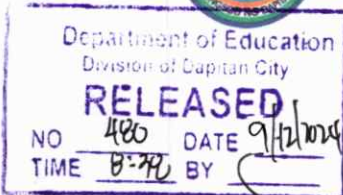 Department of Education
Division of Dapitan City
RELEASED
NO 480 DATE 9/12/2024
TIME 8:32 BY